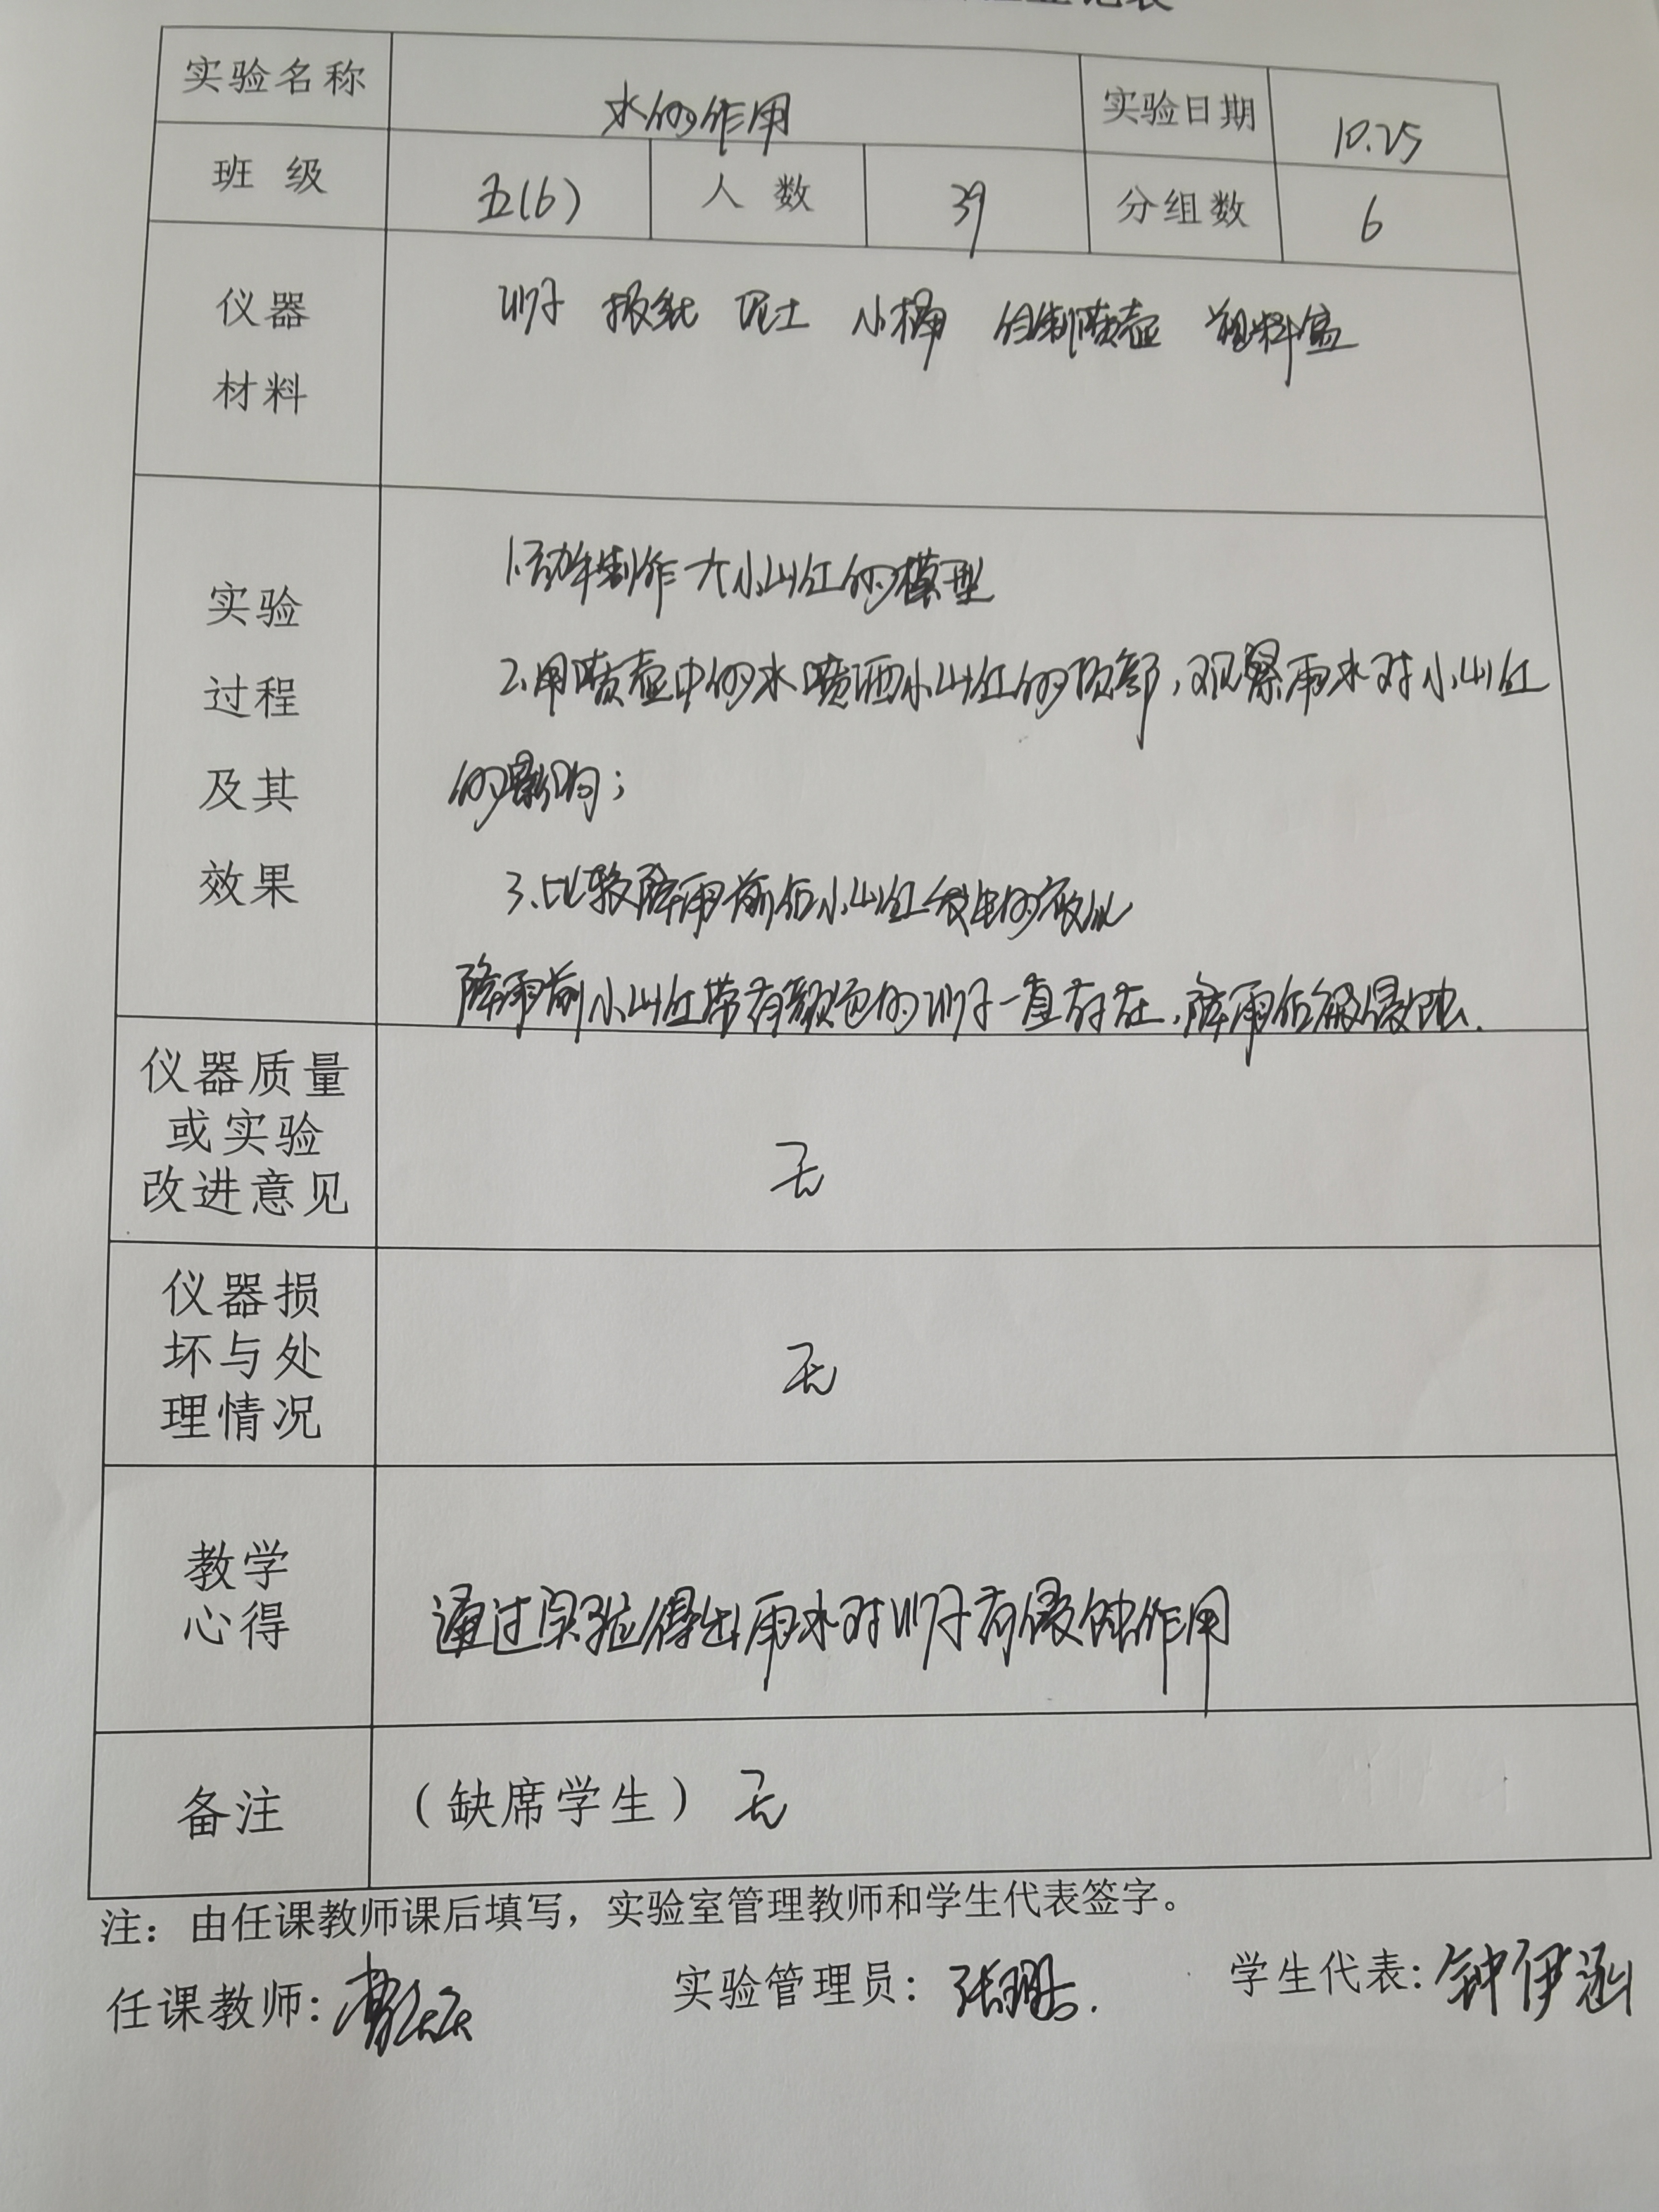 记表
实验名称 水的作用 实验日期 10.25
班级 五(6) 人数 39 分组数 6
仪器
材料
沙子 报纸 泥土 小桶 自制喷壶 塑料盒
实验
过程
及其
效果
1.动手制作一个小山丘的模型
2.用喷壶中的水喷洒小山丘的顶部,观察雨水对小山丘
的影响;
3.比较降雨前后小山丘发生的变化
降雨前小山丘带有颜色的沙子一直存在,降雨后被侵蚀.
仪器质量
或实验
改进意见
无
仪器损
坏与处
理情况
无
教学
心得
通过实验得出雨水对沙子有侵蚀作用
备注 (缺席学生) 无
注：由任课教师课后填写，实验室管理教师和学生代表签字。
任课教师: 实验管理员: 张 学生代表: 钟伊涵